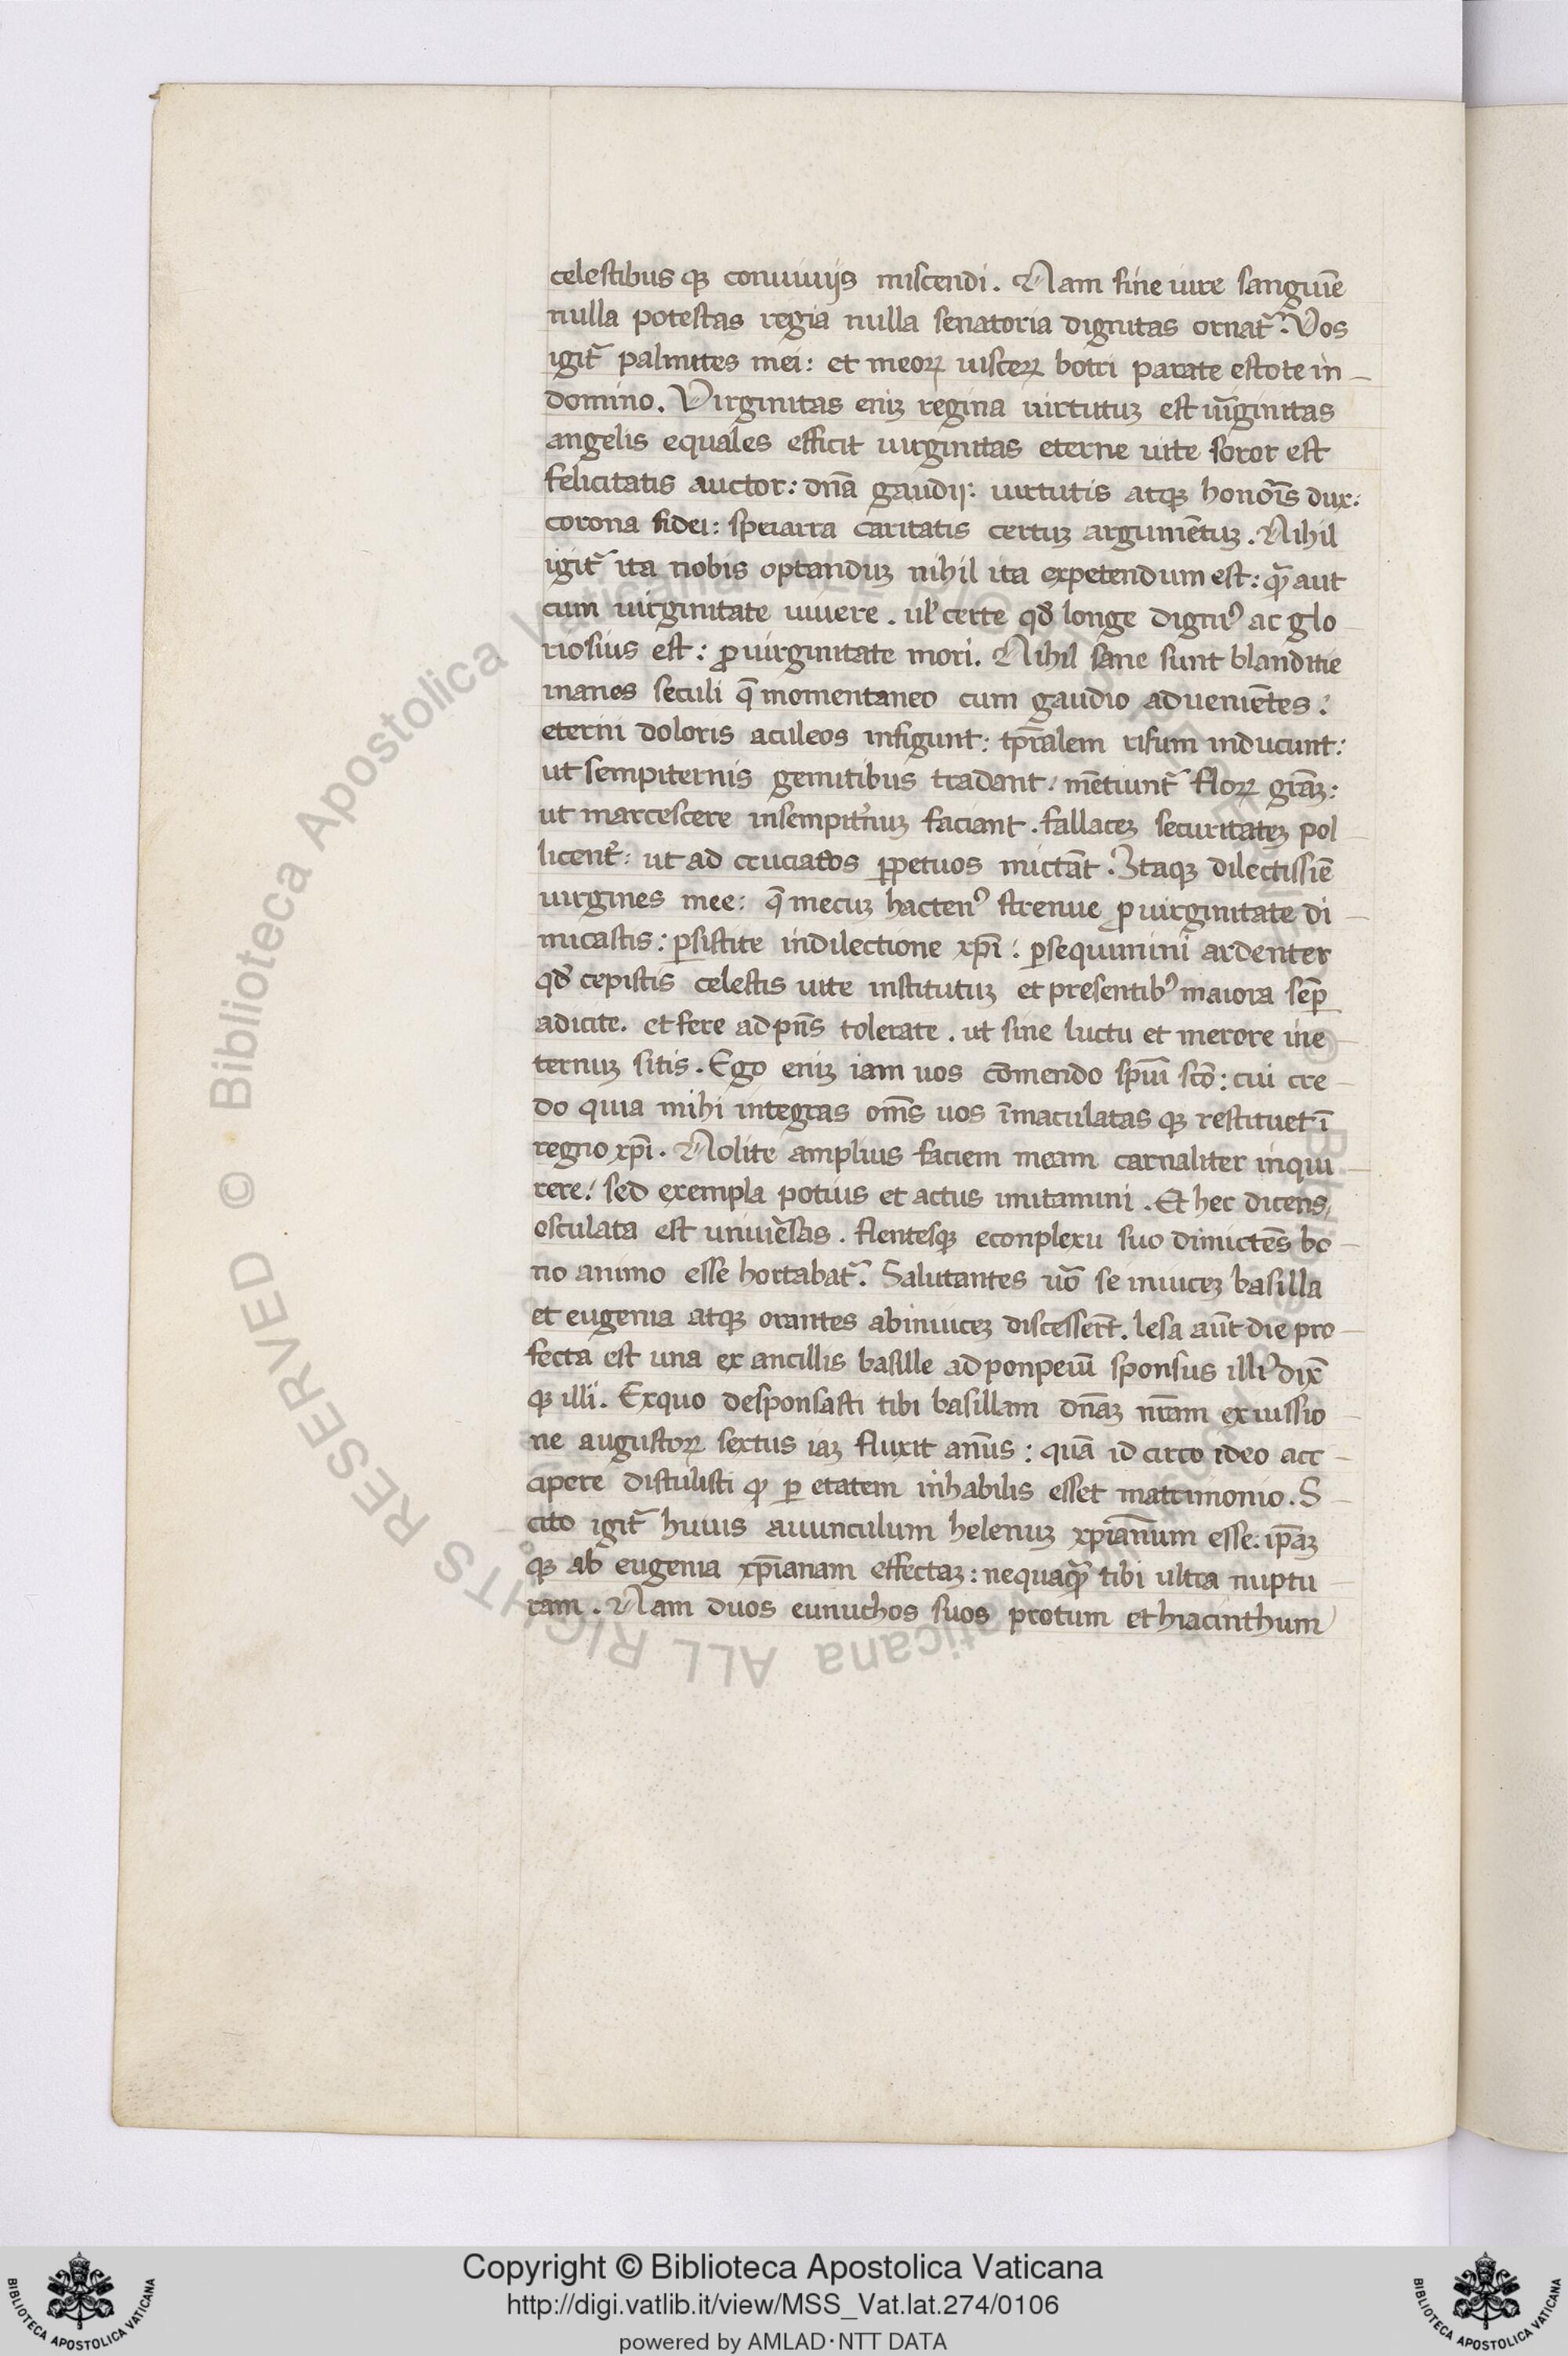 celestibus qꝫ conuiuijs miscendi. Nam sine iure sanguiē
nulla potestas regia nulla senatoria dignitas ornat᷑. Vos
igit᷑ palmites mei: et meoꝝ uisceꝝ botri parate estote in
domino. Virginitas eniꝫ regina uirtutuꝫ est uīginitas
angelis equales efficit uirginitas eterne uite soror est
felicitatis auctor: dnā gaudij: uirtutis atqꝫ honoīs dux:
corona fidei: spei arra caritatis certuꝫ argumētuꝫ. Nihil
igit᷑ ita nobis optanduꝫ nihil ita expetendum est: qꝫ̄ aut
cum uirginitate uiuere. ul' certe qđ longe digniꝰ ac glo
riosius est: ꝓ uirginitate mori. Nihil sane sunt blanditie
inanes seculi q̄ momentaneo cum gaudio adueniētes:
eterni doloris aculeos infigunt: tp̄ralem risum inducunt:
ut sempiternis gemitibus tradant: mētiunt᷑ floꝝ grāꝫ:
ut marcescere insempit̓nuꝫ faciant. fallaceꝫ securitateꝫ pol
licent᷑: ut ad cruciatos ꝑpetuos mictāt. Itaqꝫ dilectissiē
uirgines mee: q̄ mecuꝫ hactenꝰ strenue ꝓ uirginitate di
micastis: ꝑsistite indilectione xp̄i: ꝑsequimini ardenter
qđ cepistis celestis uite institutuꝫ et presentibꝰ maiora sēp
adicite. et fere ad pn̄s tolerate. ut sine luctu et merore ine
ternuꝫ sitis. Ego eniꝫ iam uos cōmendo sp̄ui scō: cui cre
do quia mihi integras om̄s uos īmaculatas qꝫ restituet ī
regno xp̄i. Nolite amplius faciem meam carnaliter inqui
rere: sed exempla potius et actus imitamini. Et hec dicens
osculata est uniuēsas. flentesqꝫ econplexu suo dimictēs bo
no animo esse hortabat᷑. Salutantes uō se inuiceꝫ basilla
et eugenia atqꝫ orantes abinuiceꝫ discessert̄. Iesa aūt die pro
fecta est una ex ancillis basille ad ponpeiū sponsus illiꝰ dix̄
qꝫ illi. Exquo desponsasti tibi basillam dn̄aꝫ nrām ex iussio
ne augustoꝝ sextus iaꝫ fluxit anūs: quā id circo ideo acc
cipere distulisti qꝫ ꝑ etatem inhabilis esset matrimonio. S
cito igit᷑ huius auunculum helenuꝫ xp̄ianum esse: ip̄aꝫ
qꝫ ab eugenia xp̄ianam effectaꝫ: nequaqꝫ̄ tibi ultra nuptu
ram. Nam duos eunuchos suos protum et hiacinthum
© Biblioteca Apostolica Vaticana ALL RIGHTS RESERVED
Copyright © Biblioteca Apostolica Vaticana
http://digi.vatlib.it/view/MSS_Vat.lat.274/0106
powered by AMLAD·NTT DATA
BIBLIOTECA APOSTOLICA VATICANA
BIBLIOTECA APOSTOLICA VATICANA